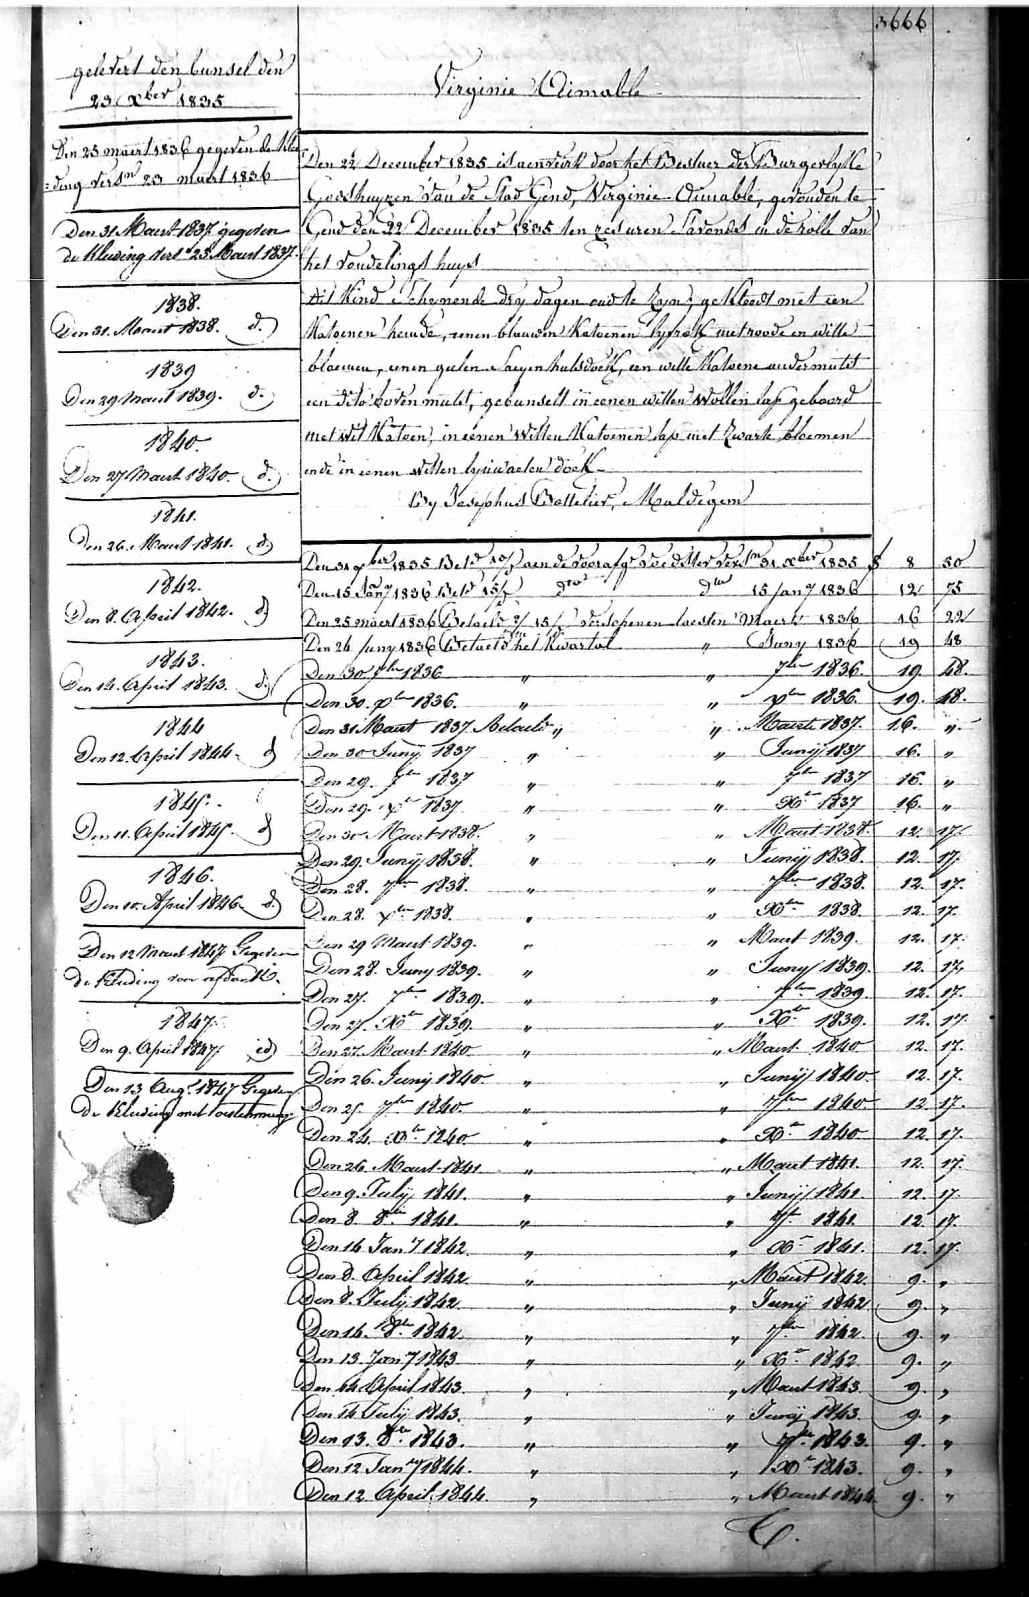 3666
gelevert den bunsel den
23 Xber 1835
Den 25 maert 1836 gegeven de Klee
=ding versn 23 maert 1836
Den 31 Maert 1837 gegeven
de Kleding vers 25 Maert 1837.
1838.
Den 31. Maert 1838. d.
1839
Den 29 Maert 1839. d.
1840.
Den 27 Maert 1840. d.
1841.
Den 26. Maert 1841. d.
1842.
Den 8. April 1842. d
1843.
Den 14. April 1843. d.
1844
Den 12. April 1844. d
1845.
Den 11. April 1845. d
1846.
Den 10. April 1846. d
Den 12 Maert 1847 Gegeven
de Kleding voor
1847.
Den 9. April 1847 id
Den 13 Augt 1847 Gegeven
De Kleeding met
Virginie Aimable
Den 22 December 1835 is aenveirt door het Bestuer der Burgerlyke
Godshuyzen van de Stad Gend, Virginie Aimable, gevonden te
Gend den 22 December 1835 ten zes uren s'avonds in de rolle van
het vondelings huys
dit Kind schynende dry dagen oud te zyn; gekleedt met een
Katoenen hemde, eenen blauwen Katoenen lyfrok met roode en witte
bloemen, eenen gelen Sargen halsdoek, een witte Katoene ondermuts
een dito boven muts, gebunselt in eenen witten Wollen lap geboord
met wit Katoen, in eenen witten Katoenen lap met Zwarte bloemen
ende in eenen witten lynwaeten doek
By Josephus Bottelier, Maldegem
Den 31 Xber 1835 Belt aen de voorafge voedster versn 31 Xber 1835 f 8 50
Den 15 Jany 1836 Belt 15/ dto dto 15 Jany 1836 12 75
Den 25 maert 1836 Betaelt 15/ verschenen laesten Maert 1836 16 22
Den 26 Juny 1836 Betaeld het Kwartal „ Juny 1836 19 48
Den 30 7ber 1836 „ „ 7ber 1836. 19. 48.
Den 30. Xber 1836. „ „ Xber 1836. 19. 48.
Den 31 Maert 1837 Betaeld „ „ Maert 1837. 16. „
Den 30 Junij 1837 „ „ Junij 1837 16. „
Den 29. 7ber 1837 „ „ 7ber 1837 16. „
Den 29. Xber 1837 „ „ Xber 1837 16. „
Den 30 Maert 1838. „ „ Maert 1838. 12. 17.
Den 29. Junij 1838. „ „ Junij 1838. 12. 17.
Den 28. 7ber 1838. „ „ 7ber 1838. 12. 17.
Den 28. Xber 1838. „ „ Xber 1838. 12. 17.
Den 29 Maert 1839. „ „ Maert 1839. 12. 17.
Den 28. Juny 1839. „ „ Juny 1839. 12. 17.
Den 27. 7ber 1839. „ „ 7ber 1839. 12. 17.
Den 27. Xber 1839. „ „ Xber 1839. 12. 17.
Den 27. Maert 1840 „ „ Maert 1840 12. 17.
Den 26. Junij 1840. „ „ Junij 1840. 12. 17.
Den 25. 7ber 1840. „ „ 7ber 1840 12. 17.
Den 24. Xber 1840. „ „ Xber 1840 12. 17.
Den 26. Maert 1841. „ „ Maert 1841. 12. 17.
Den 9. Julij 1841. „ „ Junij 1841. 12. 17.
Den 8. 8ber 1841. „ „ 7ber 1841. 12 17.
Den 14 Jany 1842. „ „ Xber 1841. 12. 17.
Den 8. April 1842. „ „ Maert 1842. 9. „
Den 8. Julij 1842. „ „ Junij 1842 9. „
Den 14. 8ber 1842. „ „ 7ber 1842. 9. „
Den 13. Jany 1843 „ „ Xber 1842. 9. „
Den 14 April 1843. „ „ Maert 1843. 9. „
Den 14 Julij 1843. „ „ Junij 1843. 9. „
Den 13. 8ber 1843. „ „ 7ber 1843. 9. „
Den 12 Jany 1844. „ „ Xber 1843. 9. „
Den 12 April 1844. „ „ Maert 1844 9. „